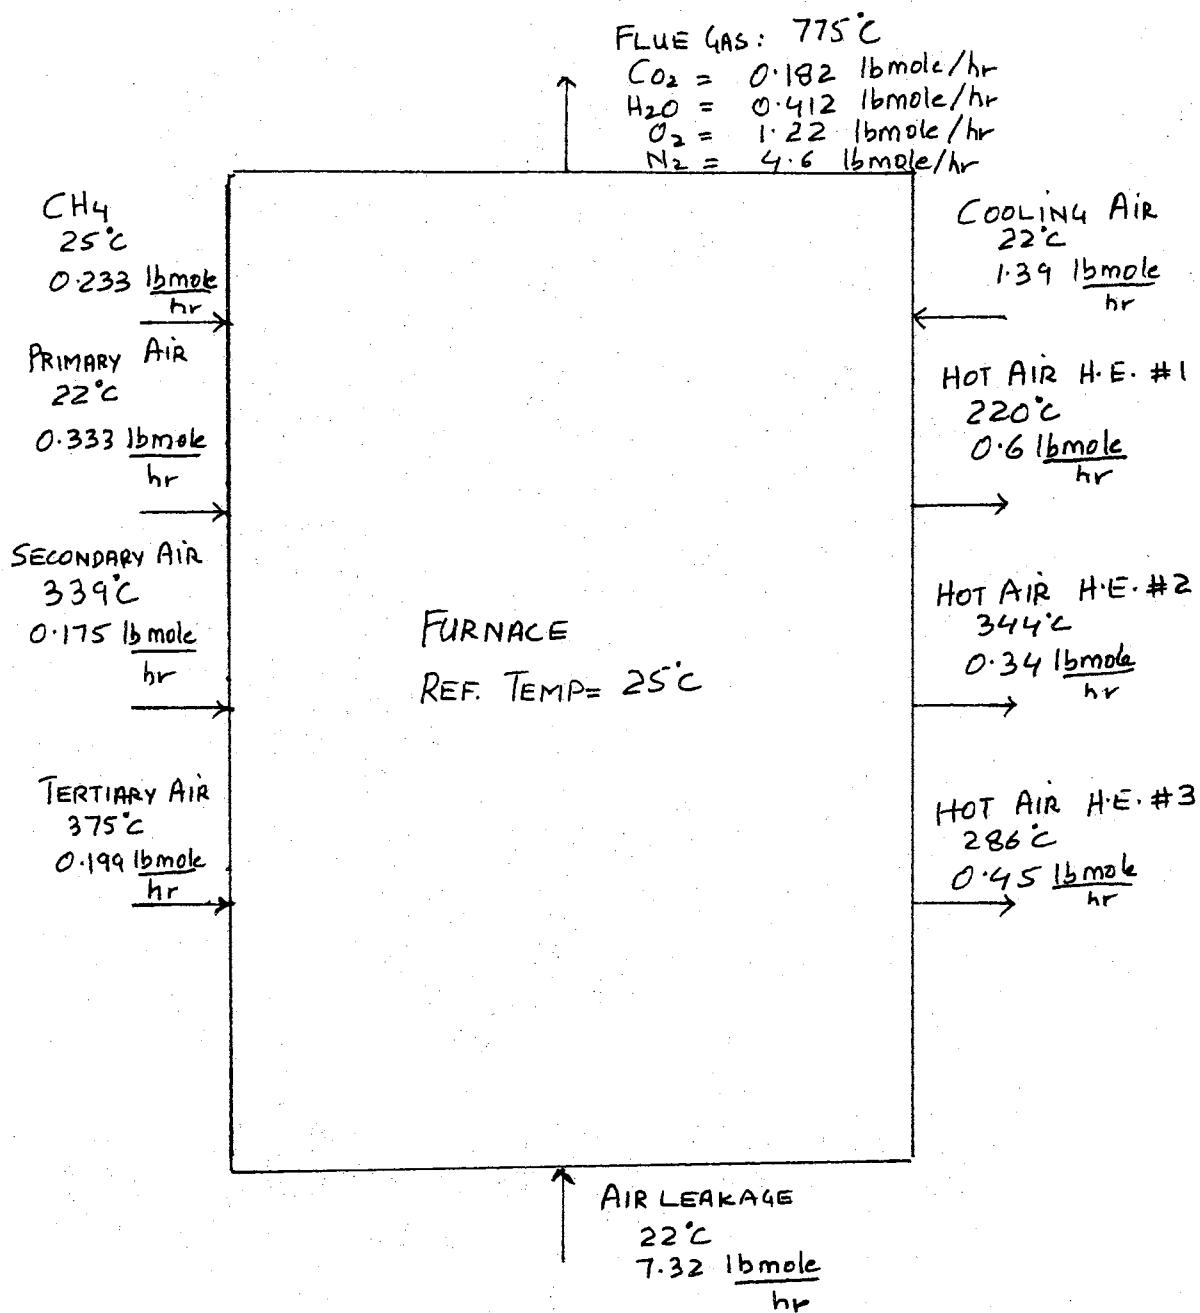 FLUE GAS: 775°C
CO2 = 0.182 lbmole/hr
H2O = 0.412 lbmole/hr
O2 = 1.22 lbmole/hr
N2 = 4.6 lbmole/hr
CH4
25°C
0.233 lbmole
hr
PRIMARY AIR
22°C
0.333 lbmole
hr
SECONDARY AIR
339°C
0.175 lb mole
hr
TERTIARY AIR
375°C
0.199 lbmole
hr
FURNACE
REF. TEMP= 25°C
COOLING AIR
22°C
1.39 lbmole
hr
HOT AIR H.E. #1
220°C
0.6 lbmole
hr
HOT AIR H.E. #2
344°C
0.34 lbmole
hr
HOT AIR H.E. #3
286°C
0.45 lbmole
hr
AIR LEAKAGE
22°C
7.32 lbmole
hr